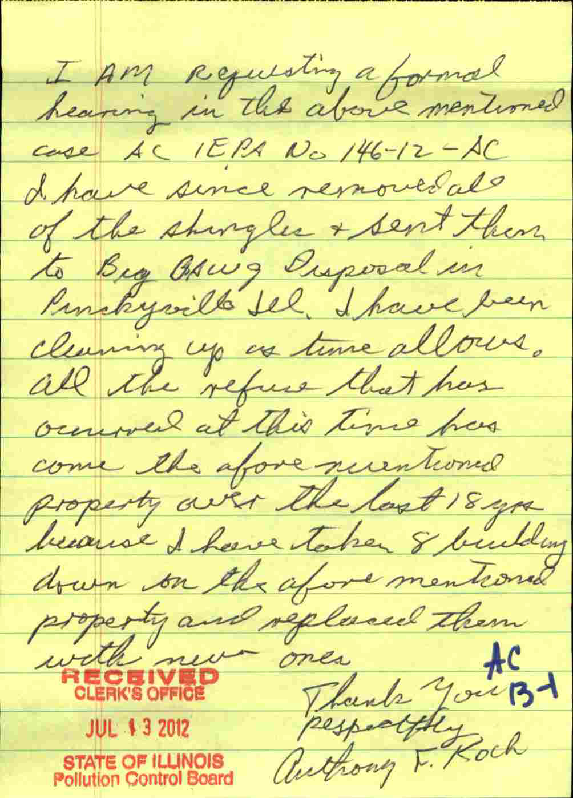 I AM Requesting a formal
hearing in the above mentioned
case AC IEPA No 146-12-AC
I have since removed all
of the shingles + sent them
to Big Disposal in
Pinckyville Ill. I have been
cleaning up as time allows.
all the refuse that has
occurred at this time has
come the afore mentioned
property over the last 18 yrs
because I have taken 8 building
down on the afore mentioned
property and replaced them
with new ones
AC
13-1
Thank You
Respectfully
Anthony F. Koch
RECEIVED
CLERK'S OFFICE
JUL 13 2012
STATE OF ILLINOIS
Pollution Control Board